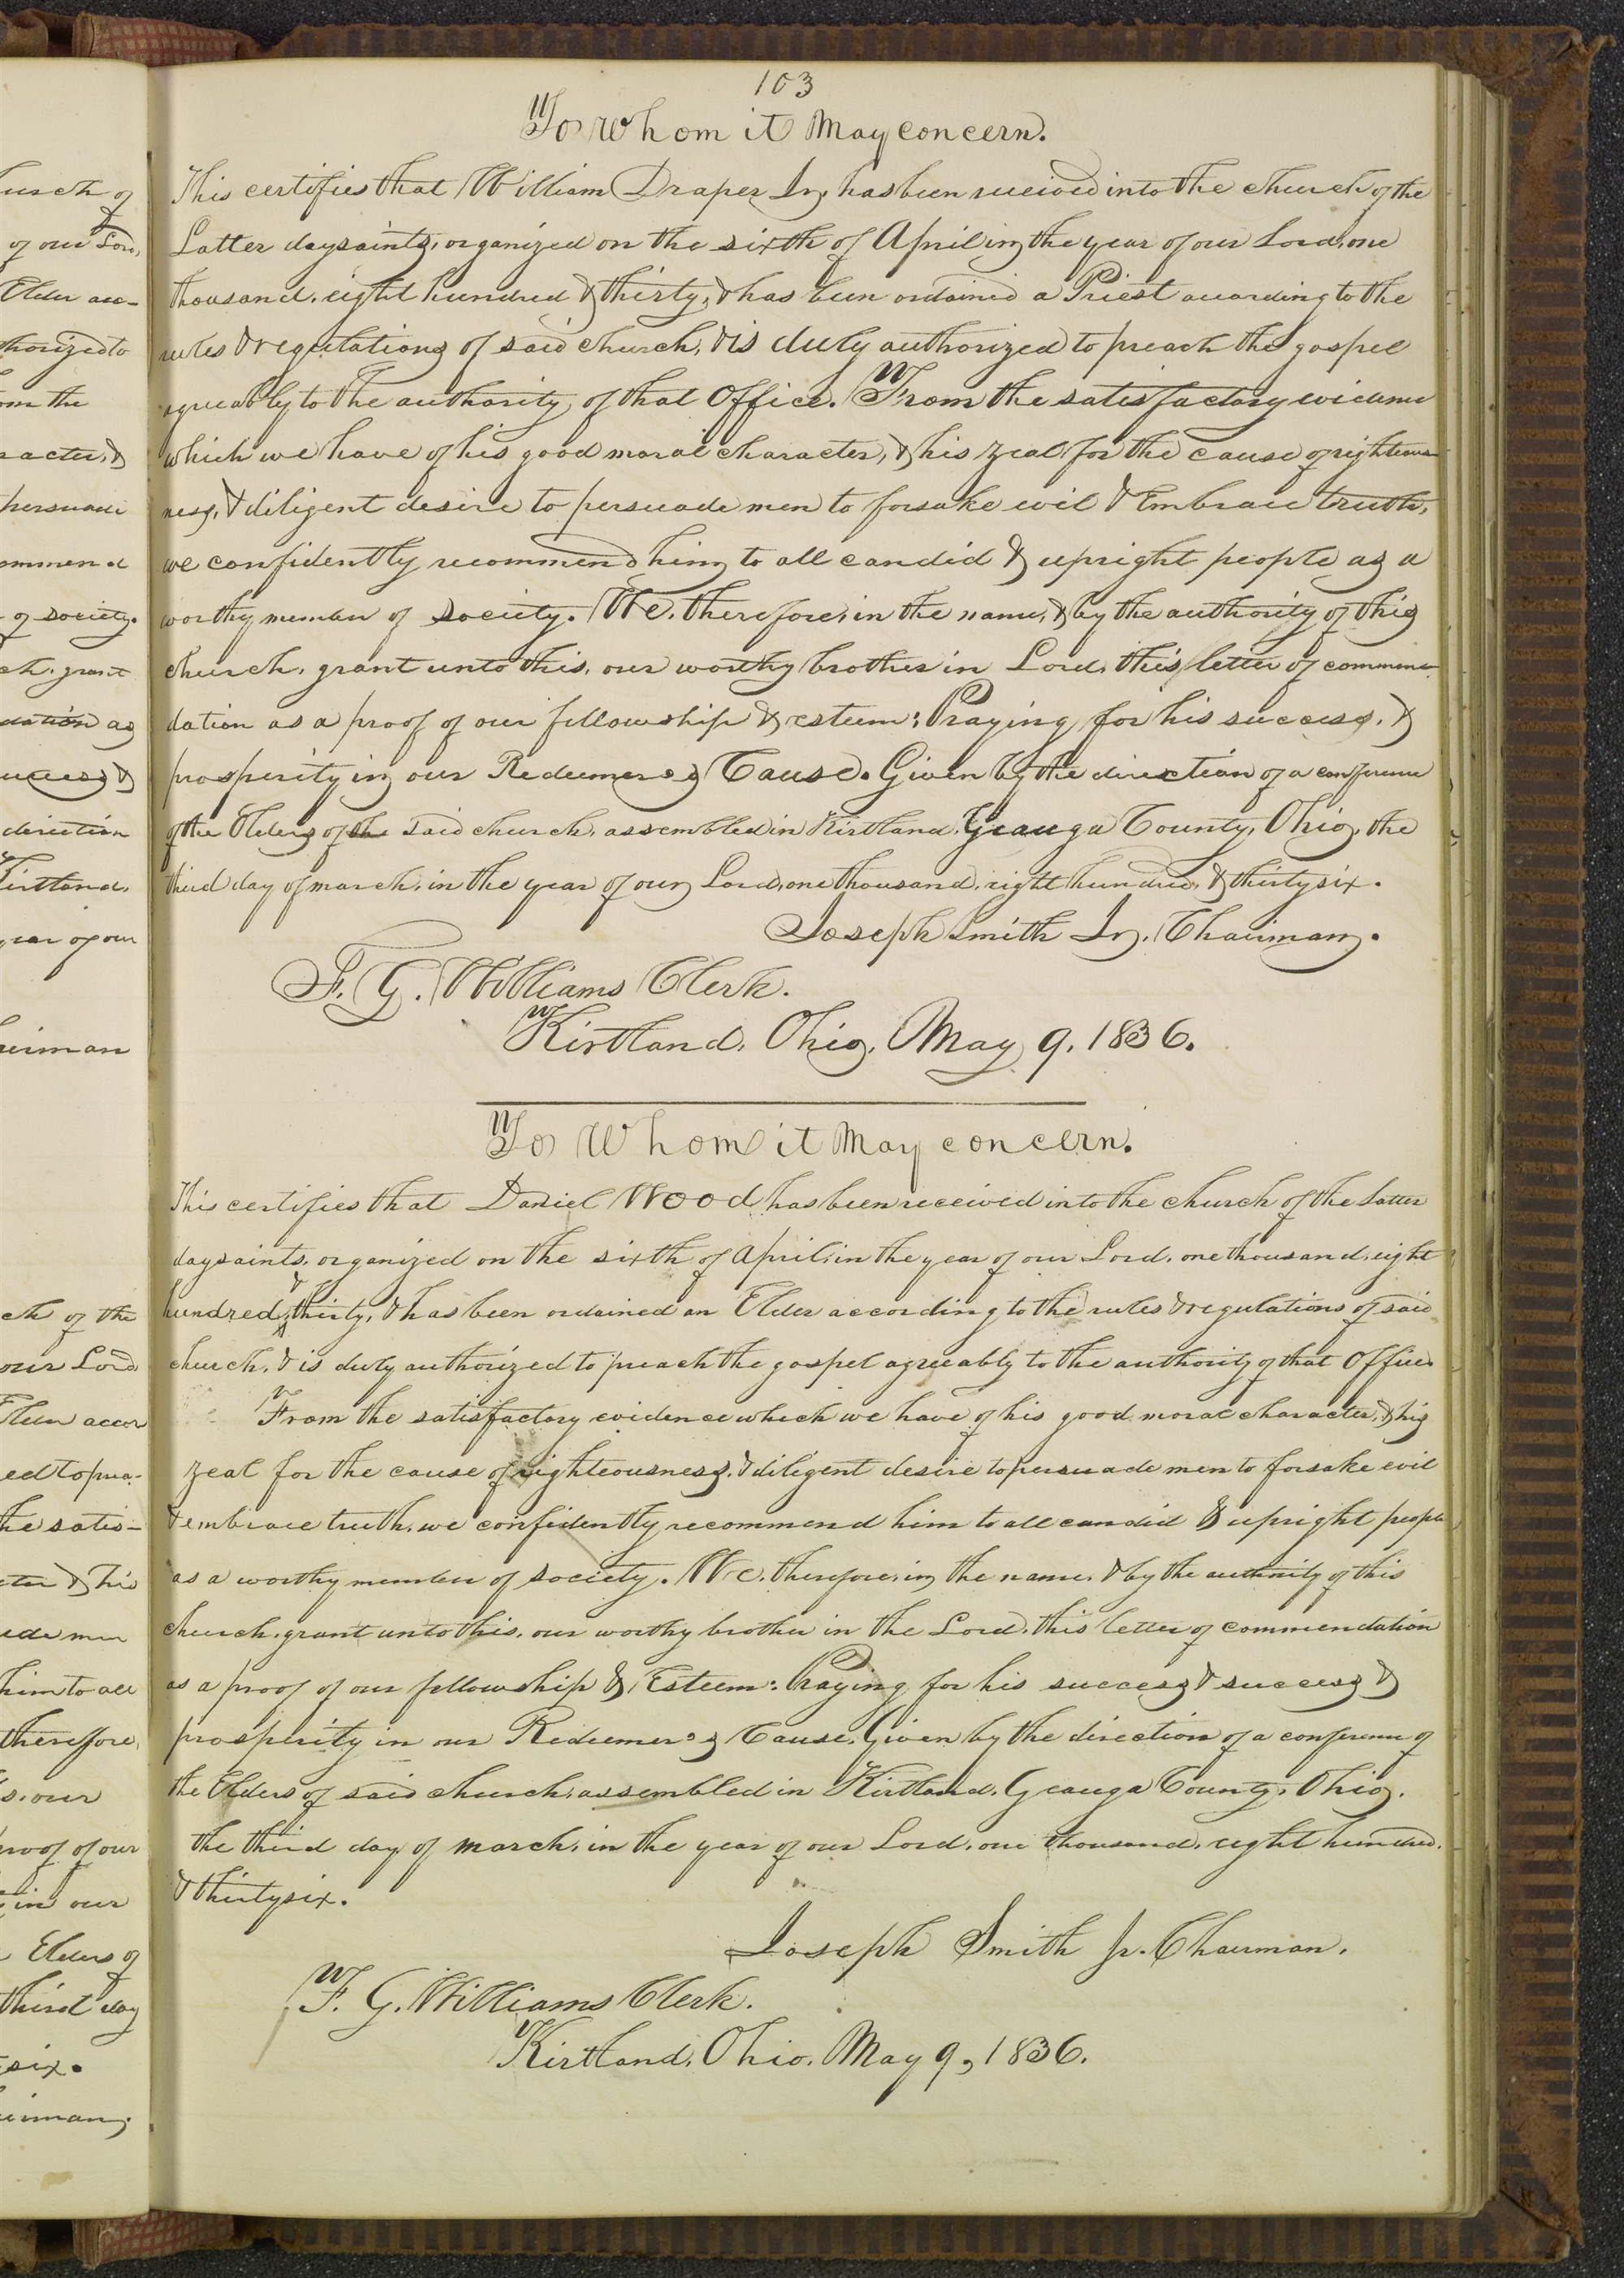 103
To Whom it May concern.
This certifies that William Draper Jr, has been received into the church of the
Latter day saints, organized on the sixth of April in the year of our Lord, one
thousand, eight hundred & thirty, & has been ordained a Priest according to the
rules & regulations of said church, & is duly authorized to preach the gospel
agreeably to the authority of that Office. From the satisfactory evidence
which we have of his good moral character, & his zeal for the cause of righteous-
ness, & diligent desire to persuade men to forsake evil & Embrace truth,
we confidently recommend him to all candid & upright people as a
worthy member of society. We, therefore, in the name, & by the authority of this
church, grant unto this, our worthy brother in Lord, this letter of commen-
dation as a proof of our fellowship & esteem: Praying for his success, &
prosperity in our Redeemer's Cause. Given by the direction of a conference
of the Elders of the said church, assembled in Kirtland, Geauga County, Ohio, the
third day of march, in the year of our Lord, one thousand, eight hundred, & thirty six.
Joseph Smith Jr. Chairman.
F. G. Williams Clerk.
Kirtland, Ohio, May 9, 1836.
To Whom it May concern.
This certifies that Daniel Wood has been received into the church of the Latter
day saints, organized on the sixth of April, in the year of our Lord, one thousand, eight
hundred, & thirty, & has been ordained an Elder according to the rules & regulations of said
church, & is duly authorized to preach the gospel agreeably to the authority of that Office.
From the satisfactory evidence which we have of his good moral character, & his
zeal for the cause of righteousness, & diligent desire to persuade men to forsake evil
& embrace truth, we confidently recommend him to all candid & upright people
as a worthy member of society. We, therefore, in the name, & by the authority of this
church, grant unto this, our worthy brother in the Lord, this letter of commendation
as a proof of our fellowship & Esteem: Praying for his success & success &
prosperity in our Redeemer's Cause. Given by the direction of a conference of
the Elders of said church, assembled in Kirtland, Geauga County, Ohio,
the third day of march, in the year of our Lord, one thousand, eight hundred,
& thirty six.
Joseph Smith Jr. Chairman.
F. G. Williams Clerk.
Kirtland, Ohio, May 9, 1836.